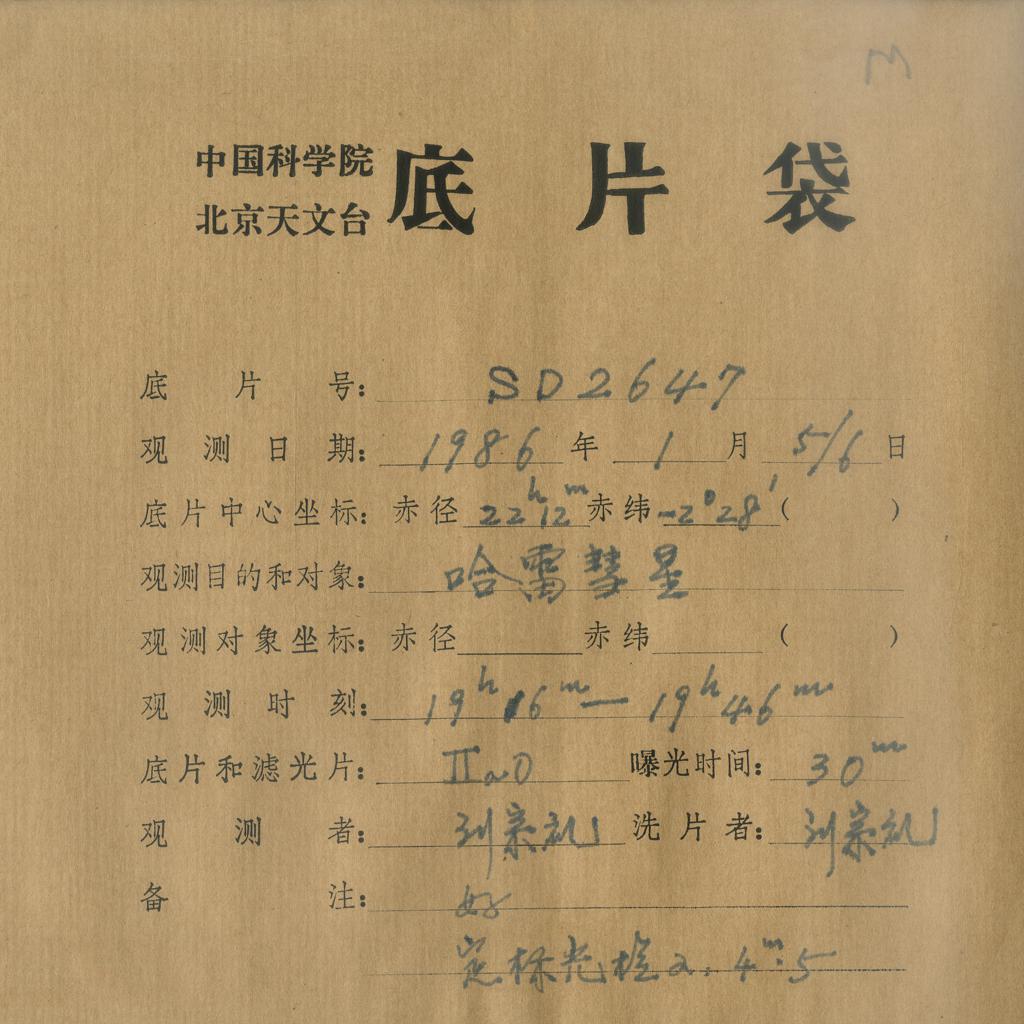 M
中国科学院
北京天文台
底片袋
底片号: SD2647
观测日期: 1986年1月5/6日
底片中心坐标: 赤径22ʰ12ᵐ赤纬-2°28′( )
观测目的和对象: 哈雷彗星
观测对象坐标: 赤径 赤纬 ( )
观测时刻: 19ʰ16ᵐ—19ʰ46ᵐ
底片和滤光片: IIaO 曝光时间: 30ᵐ
观测者: 刘宗礼 洗片者: 刘宗礼
备注: 好
定标光楔2. 4ᵐ.5